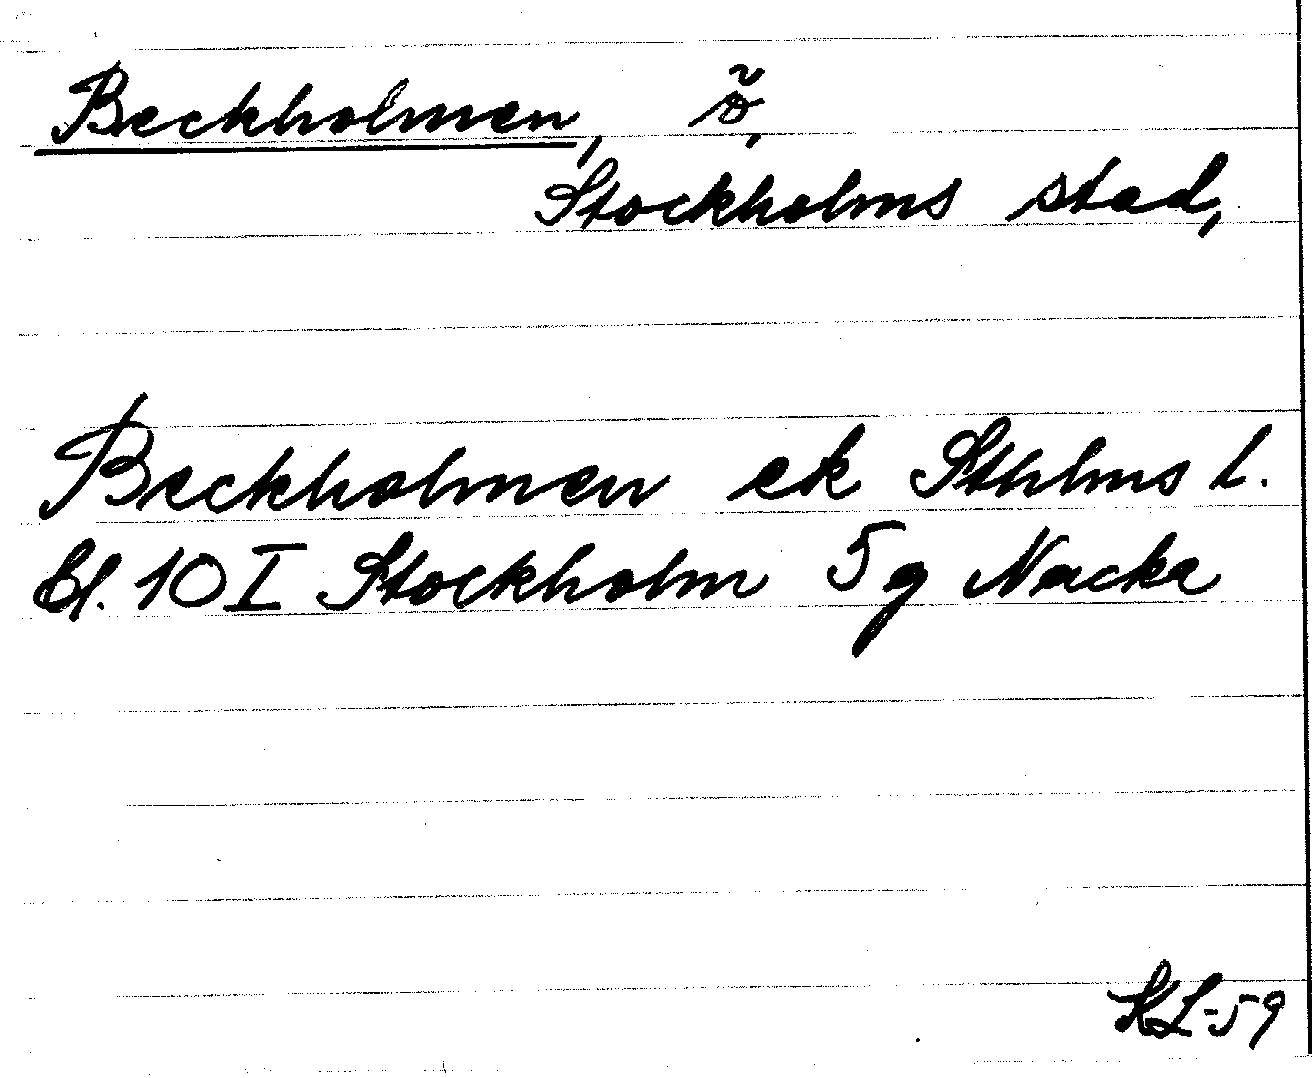 Beckholmen, ö,
Stockholms stad,
Beckholmen ek Sthlms l.
Bl. 10 I Stockholm 5 g Nacka
KL-59